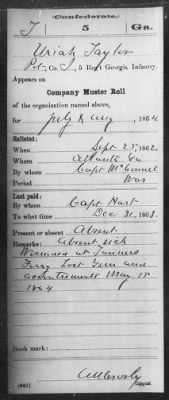 Confederate.
T 5 Ga.
Uriah Taylor
Pvt., Co. I, 5 Reg't Georgia Infantry.
Appears on
Company Muster Roll
of the organization named above,
for July & Aug, 1864.
Enlisted:
When Sept 25, 1862.
Where Atlanta Ga
By whom Capt
Period War
Last paid:
By whom Capt Hart
To what time Dec 31, 1863.
Present or absent Absent
Remarks: Absent sick
at Tanners
Ferry Lost Gun and
accoutrements May 15
1864
Book mark:
(642)
Copyist.